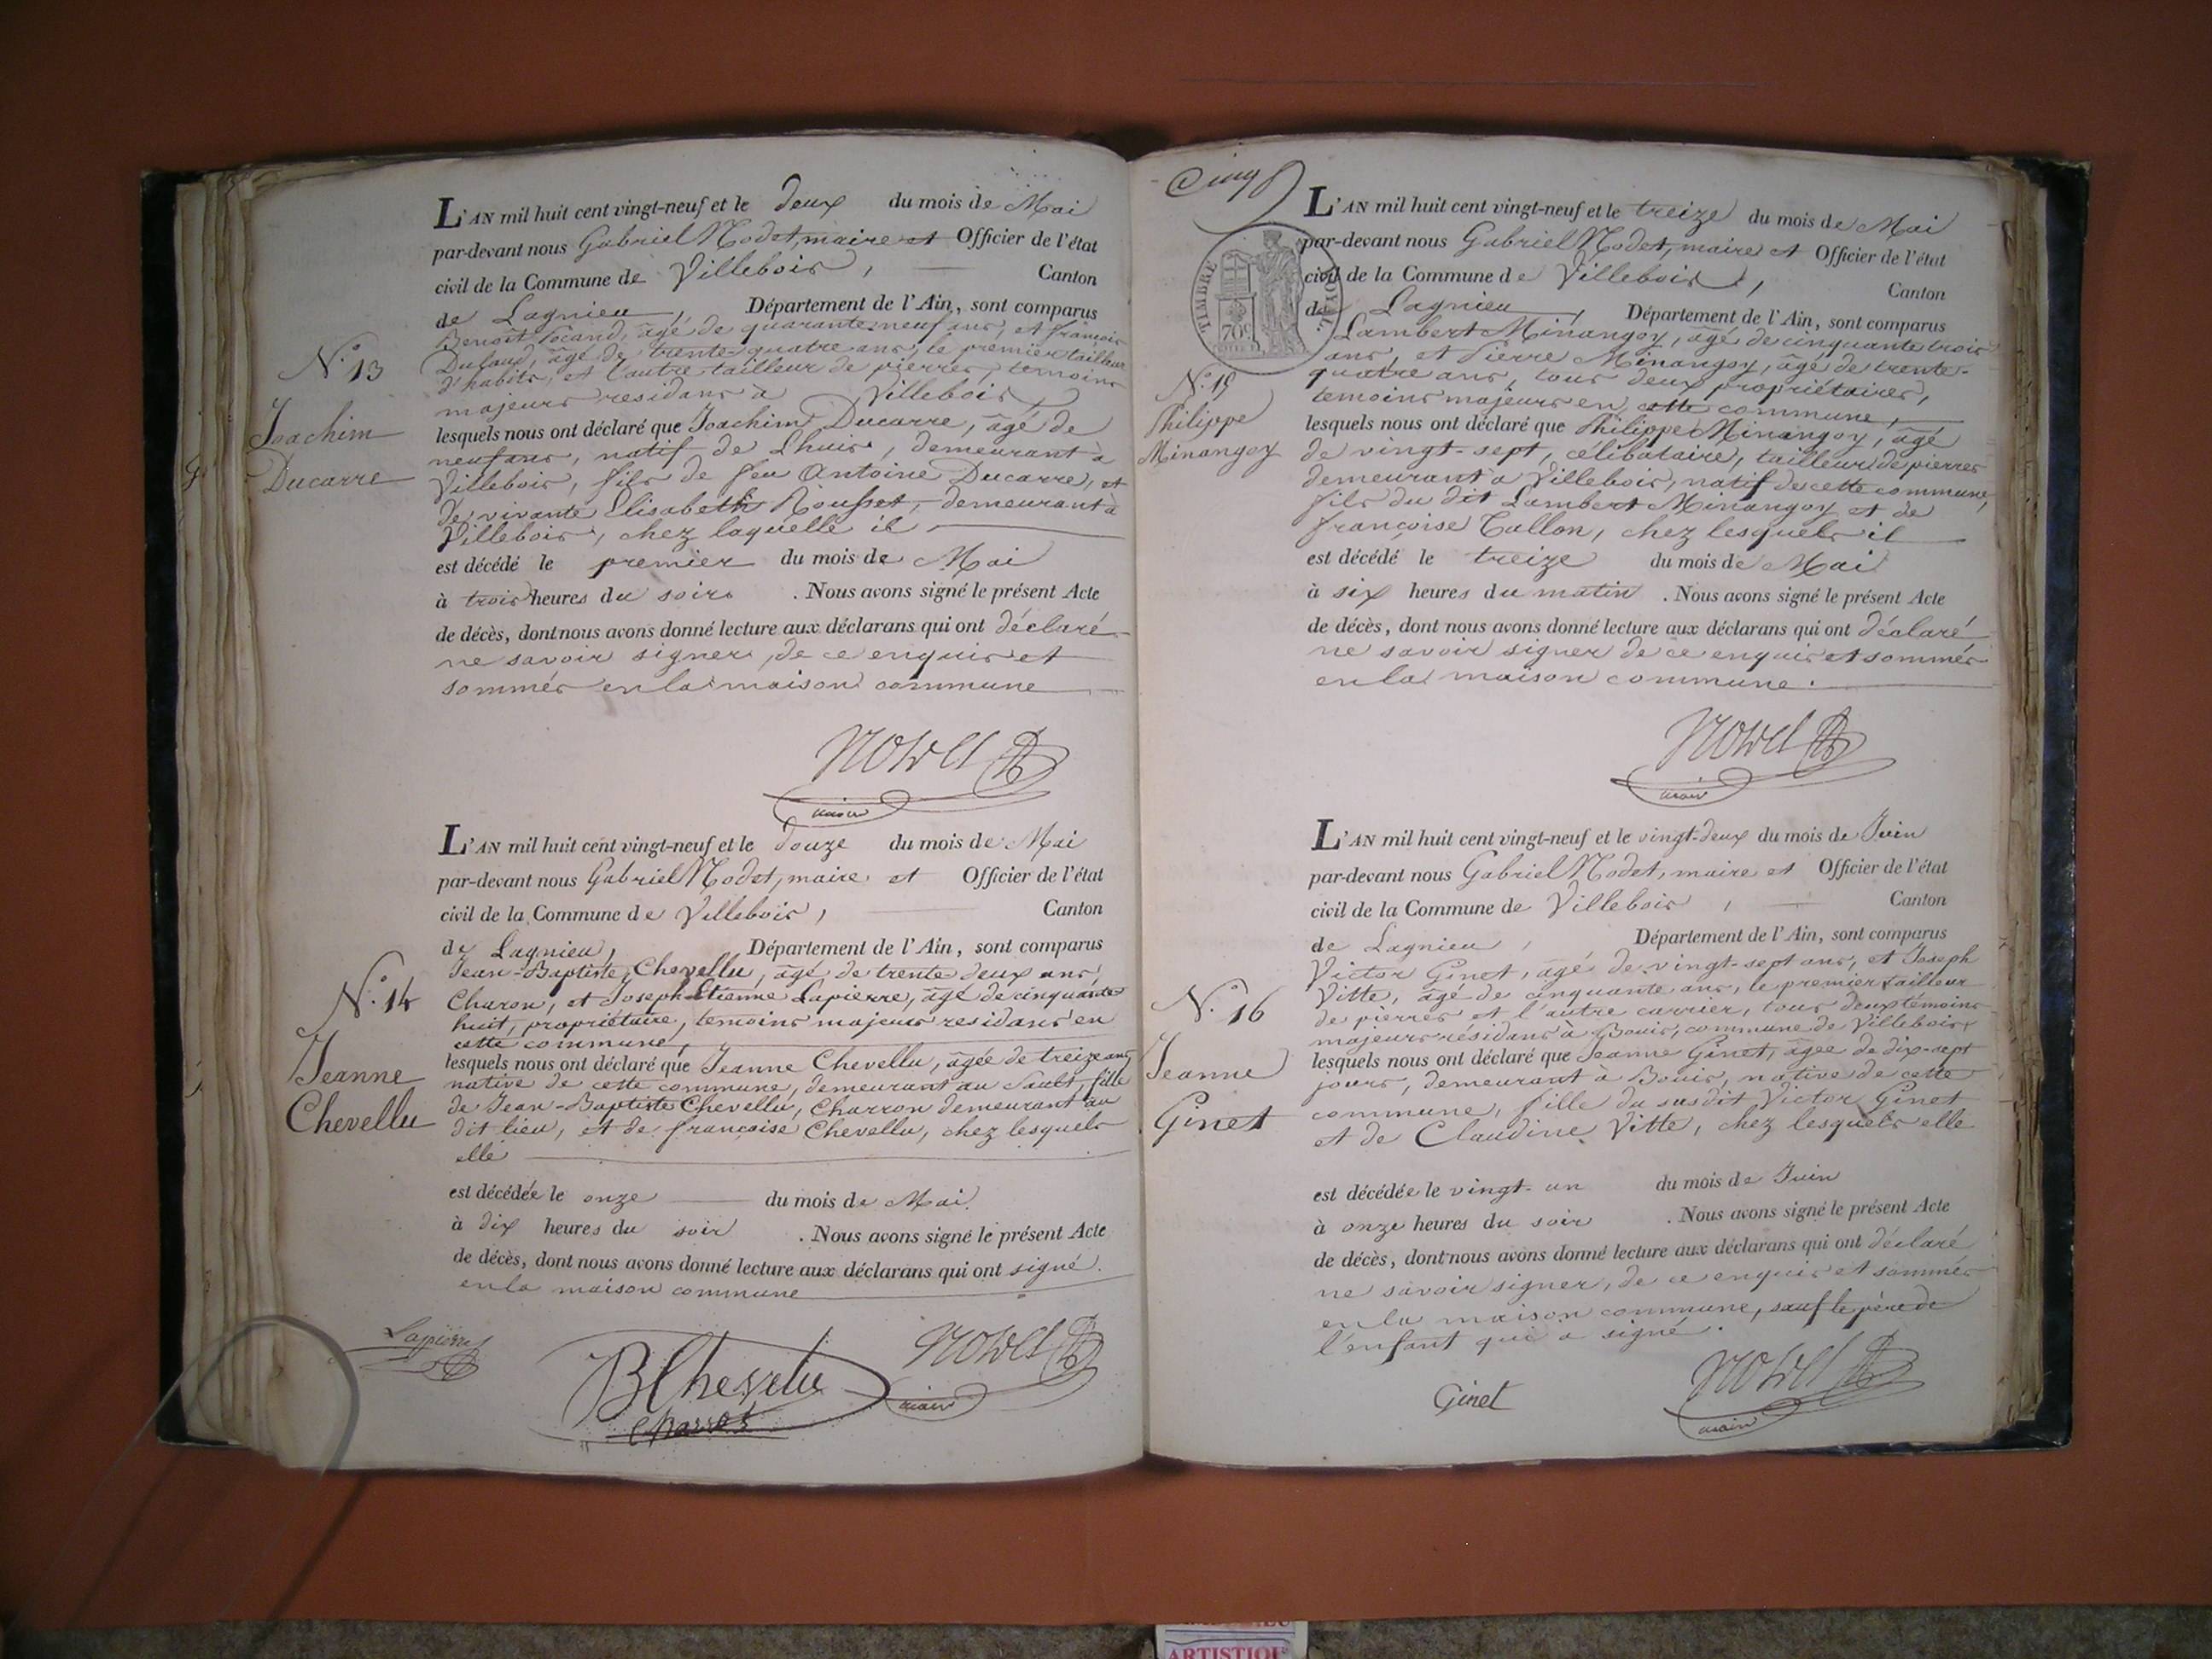 L'AN mil huit cent vingt-neuf et le deux du mois de Mai
par-devant nous Gabriel Nodet, maire et Officier de l'état
civil de la Commune de Villebois, Canton
de Lagnieu, Département de l'Ain, sont comparus
Benoît Jocand, âgé de quarante-neuf ans, et françois
Dufaud, âgé de trente-quatre ans, le premier tailleur
d'habits, et l'autre tailleur de pierres, temoins
majeurs residans à Villebois
N.° 13
Joachim
Ducarre
lesquels nous ont déclaré que Joachim Ducarre, âgé de
neuf ans, natif de Lhuis, demeurant à
Villebois, fils de feu Antoine Ducarre, et
de vivante Elisabeth Rousset, demeurant à
Villebois, chez laquelle il
est décédé le premier du mois de Mai
à trois heures du soir. Nous avons signé le présent Acte
de décès, dont nous avons donné lecture aux déclarans qui ont déclaré
ne savoir signer, de ce enquis et
sommés en la maison commune
Nodet
maire
L'AN mil huit cent vingt-neuf et le douze du mois de Mai
par-devant nous Gabriel Nodet, maire et Officier de l'état
civil de la Commune de Villebois, Canton
de Lagnieu, Département de l'Ain, sont comparus
Jean-Baptiste Chevellu, âgé de trente deux ans,
Charon, et Joseph Etienne Lapierre, âgé de cinquante
huit, propriétaire, temoins majeurs residans en
cette commune,
N.° 14
Jeanne
Chevellu
lesquels nous ont déclaré que Jeanne Chevellu, âgée de treize ans,
native de cette commune, demeurant au Sault, fille
de Jean-Baptiste Chevellu, Charron demeurant au
dit lieu, et de françoise Chevellu, chez lesquels
elle
est décédée le onze du mois de Mai.
à dix heures du soir. Nous avons signé le présent Acte
de décès, dont nous avons donné lecture aux déclarans qui ont signé.
en la maison commune
Lapierre
B Chevelu
Charron
Nodet
maire
Cinq
TIMBRE ROYAL
70c
L'AN mil huit cent vingt-neuf et le treize du mois de Mai
par-devant nous Gabriel Nodet, maire et Officier de l'état
civil de la Commune de Villebois, Canton
de Lagnieu, Département de l'Ain, sont comparus
Lambert Minangoy, âgé de cinquante trois
ans, et Pierre Minangoy, âgé de trente-
quatre ans, tous deux propriétaires,
temoins majeurs en cette commune,
N.° 15
Philippe
Minangoy
lesquels nous ont déclaré que Philippe Minangoy, âgé
de vingt-sept, célibataire, tailleur de pierres
demeurant à Villebois, natif de cette commune,
fils du dit Lambert Minangoy et de
françoise Tallon, chez lesquels il
est décédé le treize du mois de Mai
à six heures du matin. Nous avons signé le présent Acte
de décès, dont nous avons donné lecture aux déclarans qui ont déclaré
ne savoir signer de ce enquis et sommés
en la maison commune.
Nodet
maire
L'AN mil huit cent vingt-neuf et le vingt-deux du mois de Juin
par-devant nous Gabriel Nodet, maire et Officier de l'état
civil de la Commune de Villebois, Canton
de Lagnieu, Département de l'Ain, sont comparus
Victor Ginet, âgé de vingt-sept ans, et Joseph
Vitte, âgé de cinquante ans, le premier tailleur
de pierres et l'autre carrier, tous deux témoins
majeurs résidans à Bouis, commune de Villebois
N.° 16
Jeanne
Ginet
lesquels nous ont déclaré que Jeanne Ginet, âgée de dix-sept
jours, demeurant à Bouis, native de cette
commune, fille du susdit Victor Ginet
et de Claudine Vitte, chez lesquels elle
est décédée le vingt-un du mois de Juin
à onze heures du soir. Nous avons signé le présent Acte
de décès, dont nous avons donné lecture aux déclarans qui ont déclaré
ne savoir signer, de ce enquis et sommés
en la maison commune, sauf le père de
l'enfant qui a signé.
Ginet
Nodet
maire